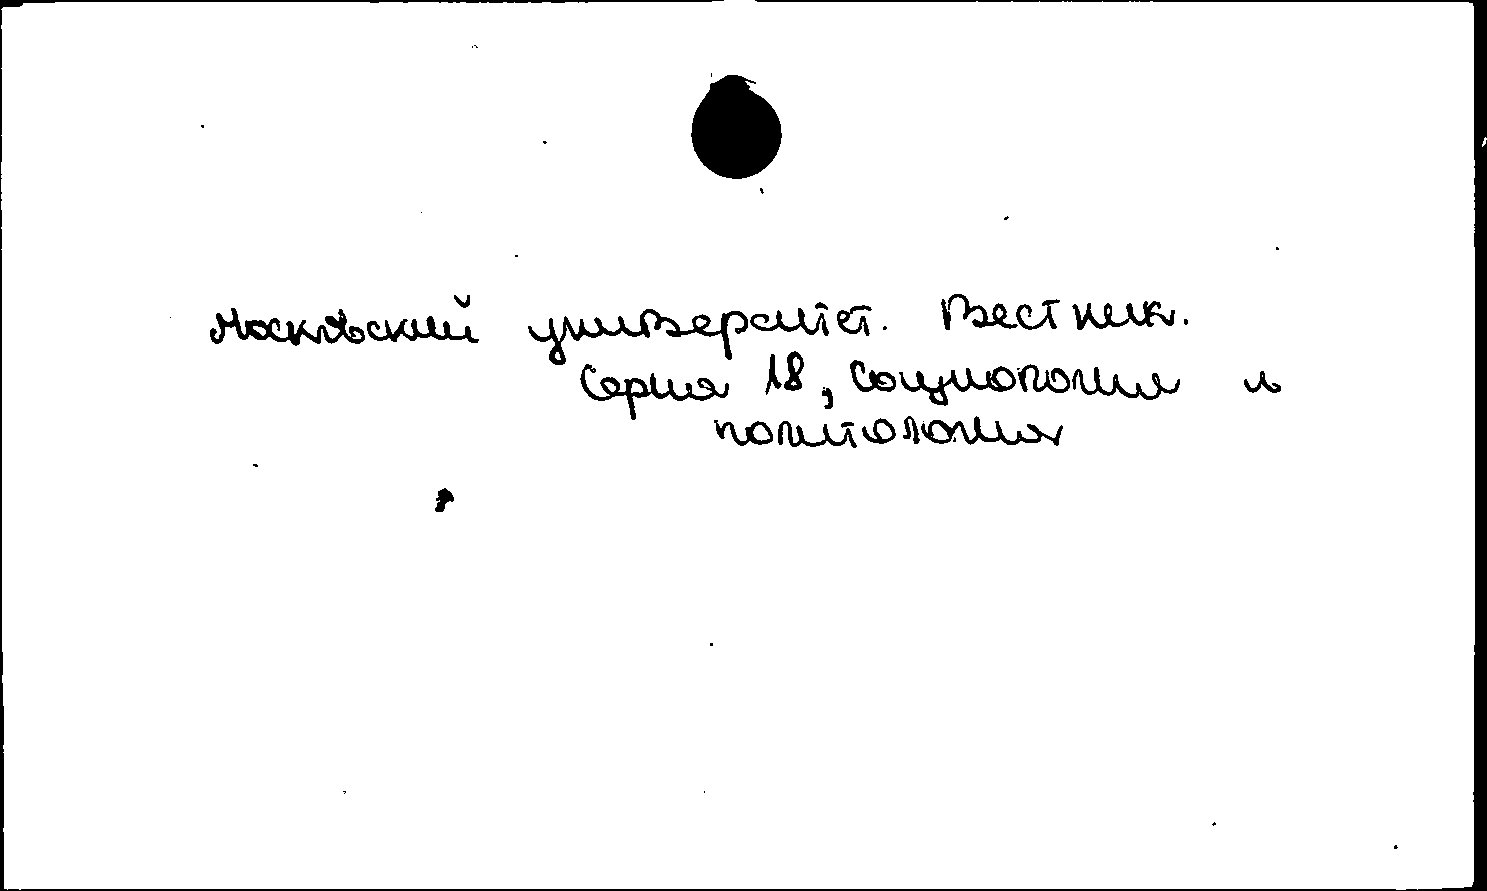 Московский университет. Вестник.
Серия 18, Социология и
политология